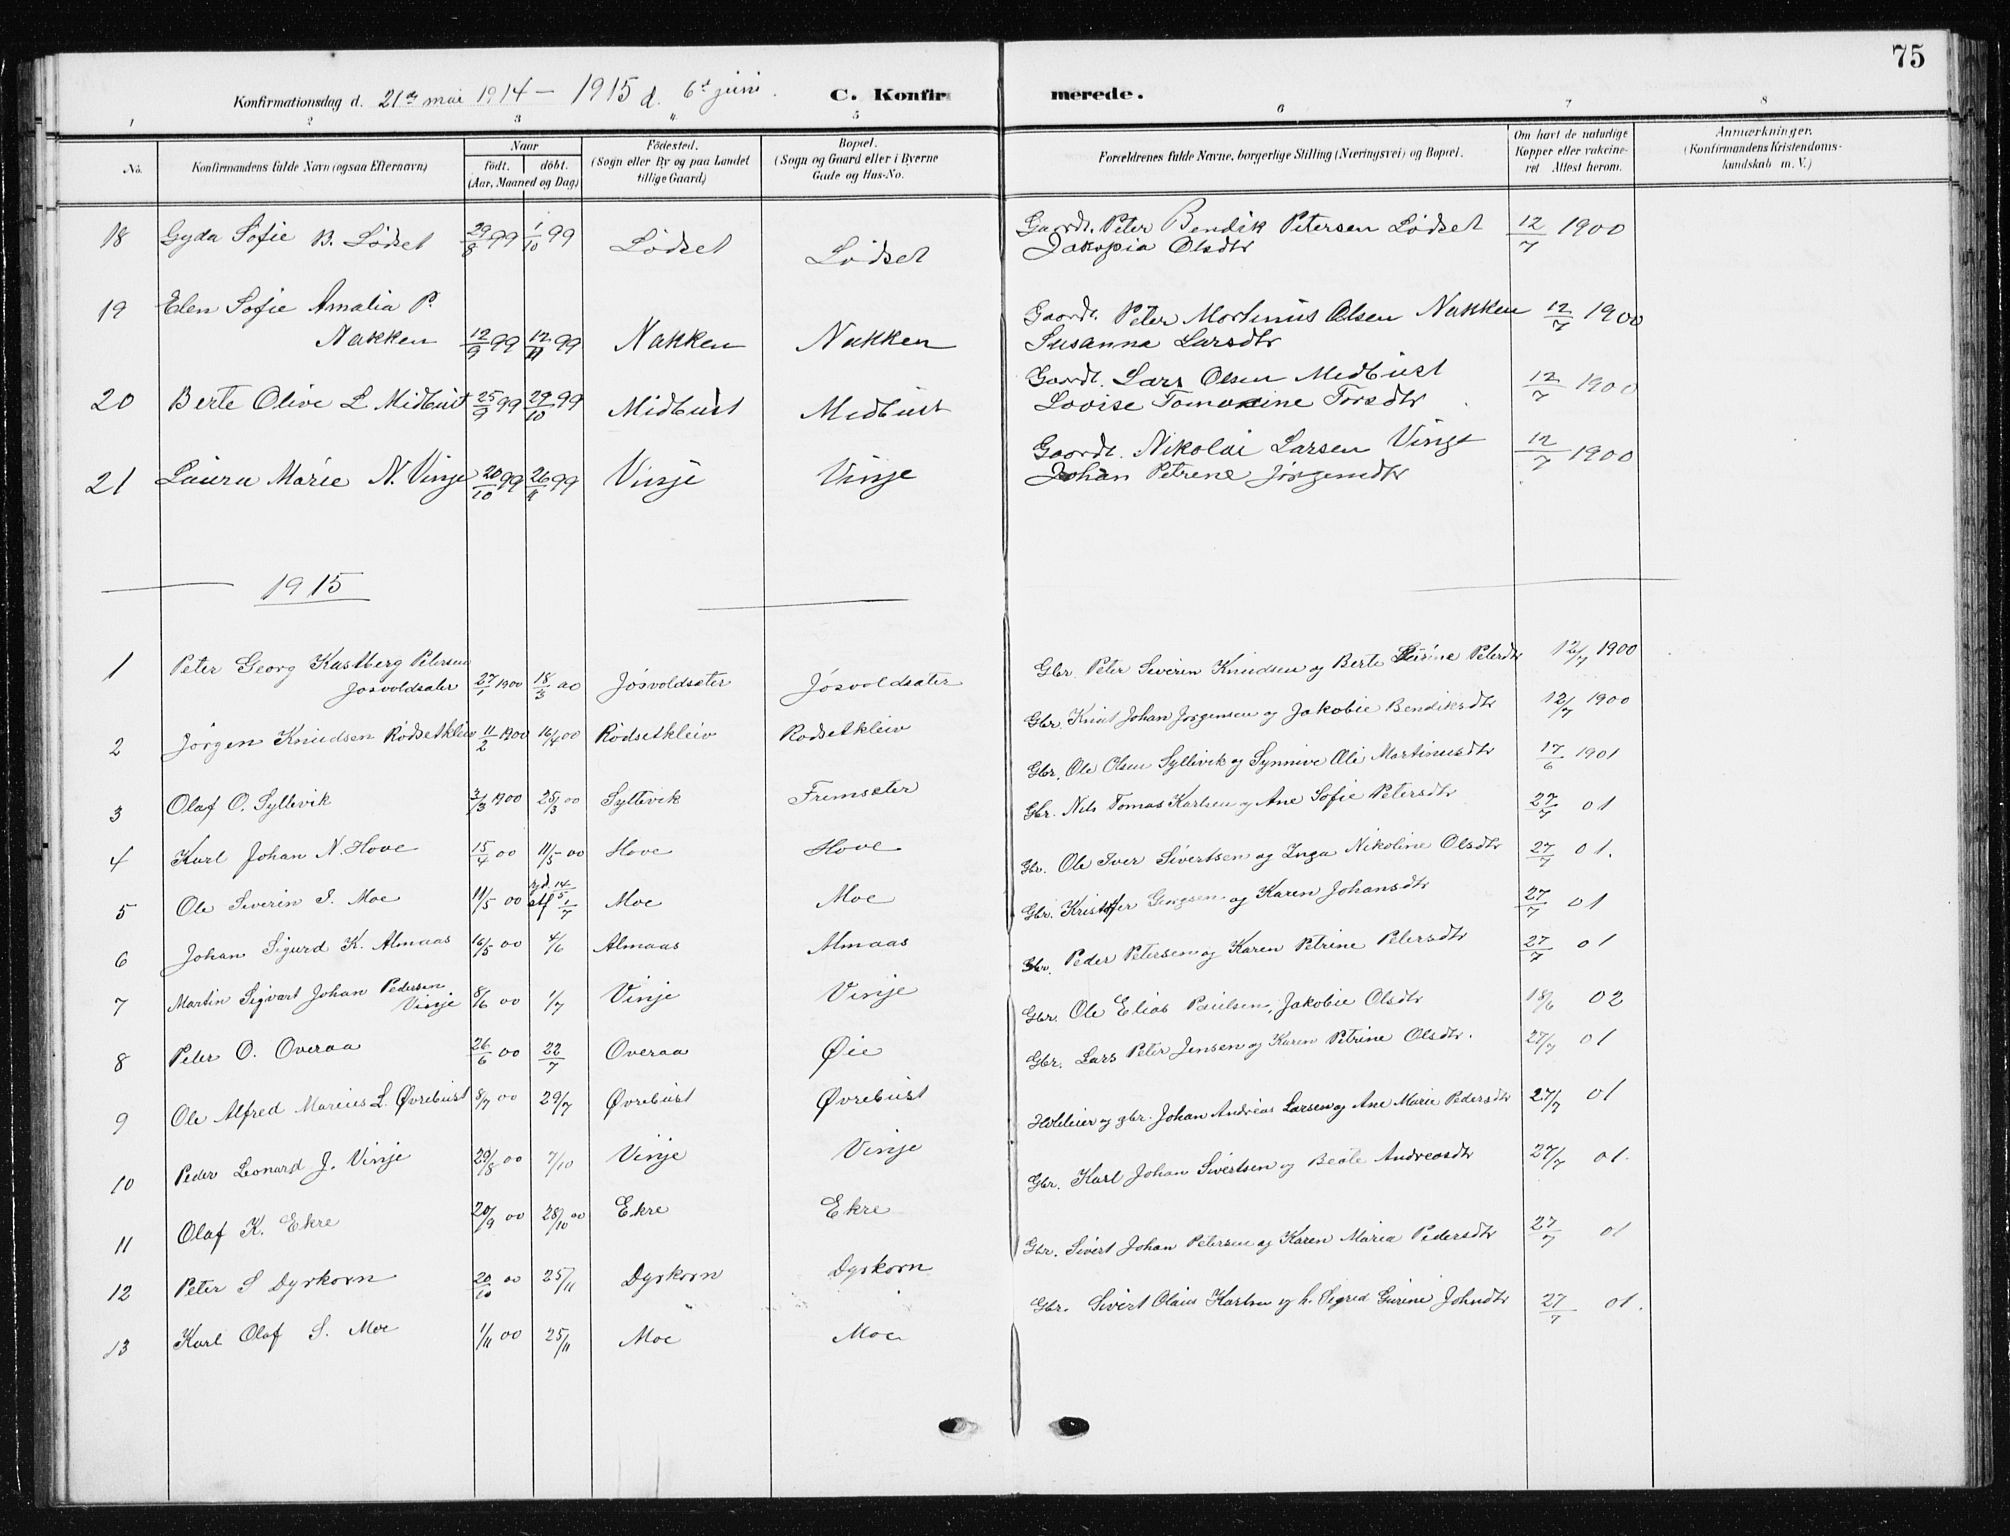 75
Konfirmationsdag d. 21de mai 1914 — 1915 d. 6te juni. C. Konfirmerede.
1 2 3 4 5 6 7 8
No. Konfirmandens fulde Navn (ogsaa Efternavn) Naar født. døbt. (Aar, Maaned og Dag) Fødested. (Sogn eller By og paa Landet tillige Gaard) Bopæl. (Sogn og Gaard eller i Byerne Gade og Hus-No. Forældrenes fulde Navne, borgerlige Stilling (Næringsvei) og Bopæl. Om havt de naturlige Kopper eller vakcineret Attest herom. Anmærkninger. (Konfirmandens Kristendomskundskab m. V.)
18 Gyda Sofie B. Lødset 29/8 99 1/10 99 Lødset Lødset Gaardr. Peter Bendik Petersen Lødset 12/7 1900
Jakopia Olsdtr
19 Elen Sofie Amalia P.
Nakken 12/9 99 12/11 99 Nakken Nakken Gaardr. Peter Mortinus Olsen Nakken 12/7 1900
Susanna Larsdtr
20 Berte Olive L Midbust 25/9 99 29/10 99 Midbust Midbust Gaardr. Lars Olsen Midbust 12/7 1900
Lovise Tomasine Torsdtr
21 Laura Marie N. Vinje 20/10 99 26/11 99 Vinje Vinje Gaardr. Nikolai Larsen Vinge 12/7 1900
Johan Petrene Jørgensdtr
1915
1 Peter Georg Kastberg Petersen
Jøsvoldsæter 27/1 1900 18/3 00 Jøsvoldsæter Jøsvoldsæter Gbr. Peter Severin Knudsen og Berte Serine Petersdtr 12/7 1900
2 Jørgen Knudsen Rødsetkleiv 11/2 1900 16/4 00 Rødsetkleiv Rødsetkleiv Gbr. Knut Johan Jørgensen og Jakobie Bendiksdtr 12/7 1900
3 Olaf O. Syltevik 3/3 1900 25/3 00 Syltevik Fremsæter Gbr. Ole Olsen Syltevik og Synnive Oli Martinusdtr 17/6 1901
4 Karl Johan N. Hove 15/4 00 11/5 00 Hove Hove Gbr. Nils Tomas Karlsen og Ane Sofie Petersdtr 27/7 01
5 Ole Severin S. Moe 11/5 00 14/5 stf 1/7 Moe Moe Gbr. Ole Iver Sivertsen og Inga Nikoline Olsdtr 27/7 01.
6 Johan Sigurd K. Almaas 16/5 00 4/6 Almaas Almaas Gbr. Kristofer Georgsen og Karen Johansdtr 27/7 01
7 Martin Sigvart Johan Pedersen
Vinje 8/6 00 1/7 Vinje Vinje Gbr. Peder Petersen og Karen Petrine Petersdtr 27/7 01
8 Peter O. Overaa 26/6 00 22/7 Overaa Øie Gbr. Ole Elias Paulsen, Jakobie Olsdtr 18/6 02
9 Ole Alfred Marius L. Øvrebust 8/7 00 29/7 Øvrebust Øvrebust Gbr. Lars Peter Jensen og Karen Petrine Olsdtr. 27/7 01
10 Peder Leonard J. Vinje 29/8 00 7/10 Vinje Vinje og gbr. Johan Andreas Larsen og Ane Marie Pedersdtr 27/7 01
11 Olaf K. Ekre 20/9 00 28/10 00 Ekre Ekre Gbr. Karl Johan Sivertsen og Beate Andreasdtr 27/7 01.
12 Peter S Dyrkorn 20/10 00 25/11 Dyrkorn Dyrkorn Gbr. Sivert Johan Petersen og Karen Maria Pedersdtr 27/7 01
13 Karl Olaf S. Moe 1/11 00 25/11 Moe Moe Gbr. Sivert Olaus Karlsen og h. Sigrid Gurine Johndtr 27/7 01.